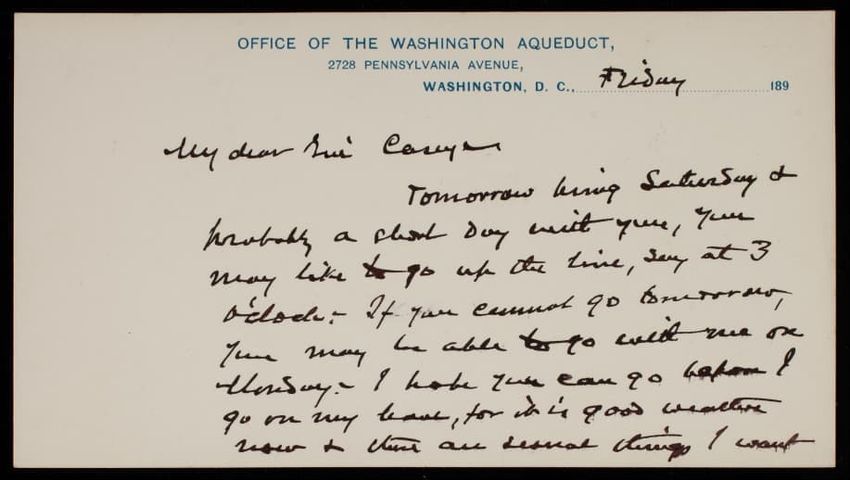 OFFICE OF THE WASHINGTON AQUEDUCT,
2728 PENNSYLVANIA AVENUE,
WASHINGTON, D. C., Friday 189
My dear Casey
Tomorrow being Saturday &
probably a short day with you, you
may like to go up the line, say at 3
o'clock:- If you cannot go tomorrow,
you may be able to go with me on
Monday:- I hope you can go before I
go on my leave, for it is good weather
now & there are several things I want